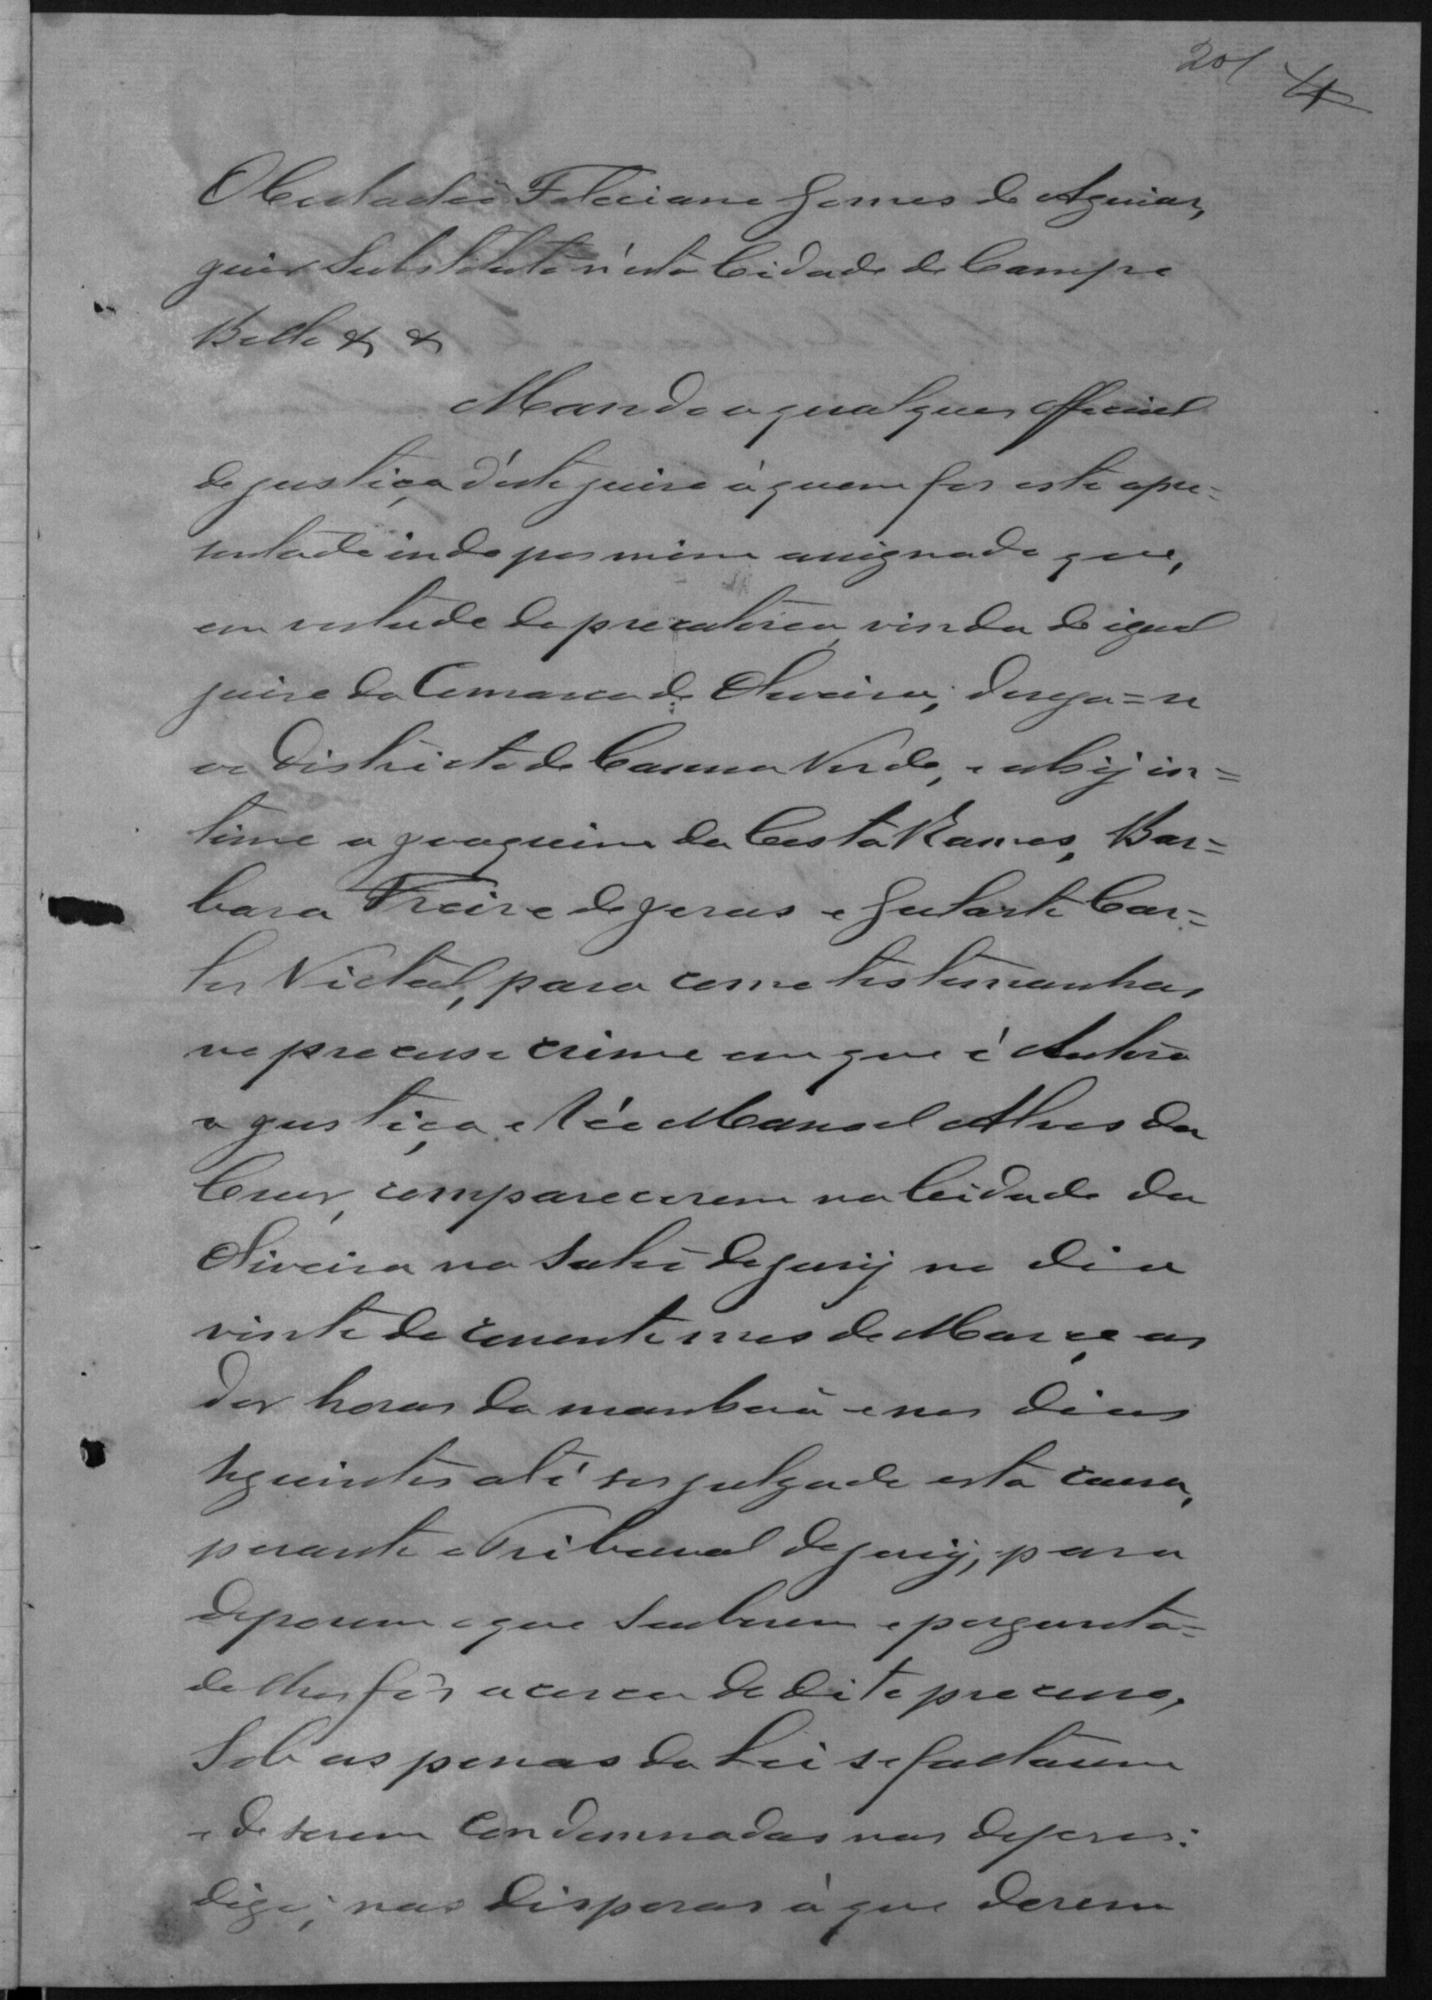 201 4
O Cidadão Feliciano Gomes de Aguiar,
juiz Substituto n'esta Cidade de Campo
Bello & &
Mando a qualquer official
de justiça d'este juiso á quem for este apre=
sentado indo por mim assignado que,
em vertude da precatoria vinda de igual
juiso da Comarca de Oliveira; dirija=se
ao Districto de Canna Verde, e ahi in=
time a Joaquim da Costa Ramos, Bar=
bara Freire de Jesus e Gularte Car=
los Victal, para como testemunhas
no processo crime em que é Autora
a justiça e Réo Manoel Alves da
Cruz, comparecerem na Cidade da
Oliveira na Salla do jury no dia
vinte do corrente mes de Março as
dez horas da manhaã e nos dias
seguintes até ser julgada esta causa,
perante o Tribunal do jury, para
deporem o que Souberem e pergunta=
do lhes fôr acerca do dito processo,
Sob as penas da Lei se faltarem
e de serem Condemnadas nas
digo, nas dispesas á que derem